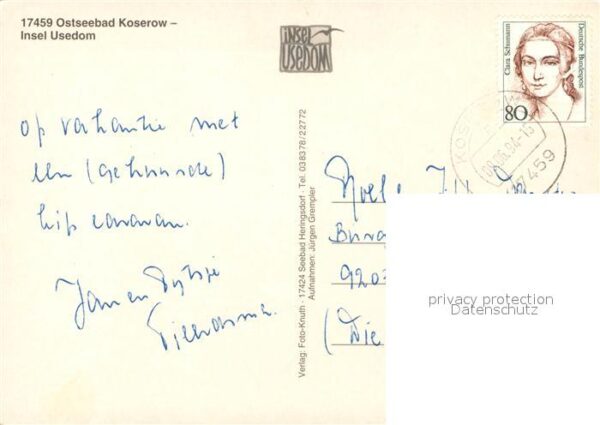 17459 Ostseebad Koserow –
Insel Usedom
INSEL
USEDOM
Clara Schumann
Deutsche Bundespost
80
17459
op vakantie met
een (gehuurde)
hip caravan.
Jan en Sytsje
Verlag: Foto-Knuth · 17424 Seebad Heringsdorf · Tel. 038378/22772
Aufnahmen: Jürgen Grempler
920
(Die
privacy protection
Datenschutz